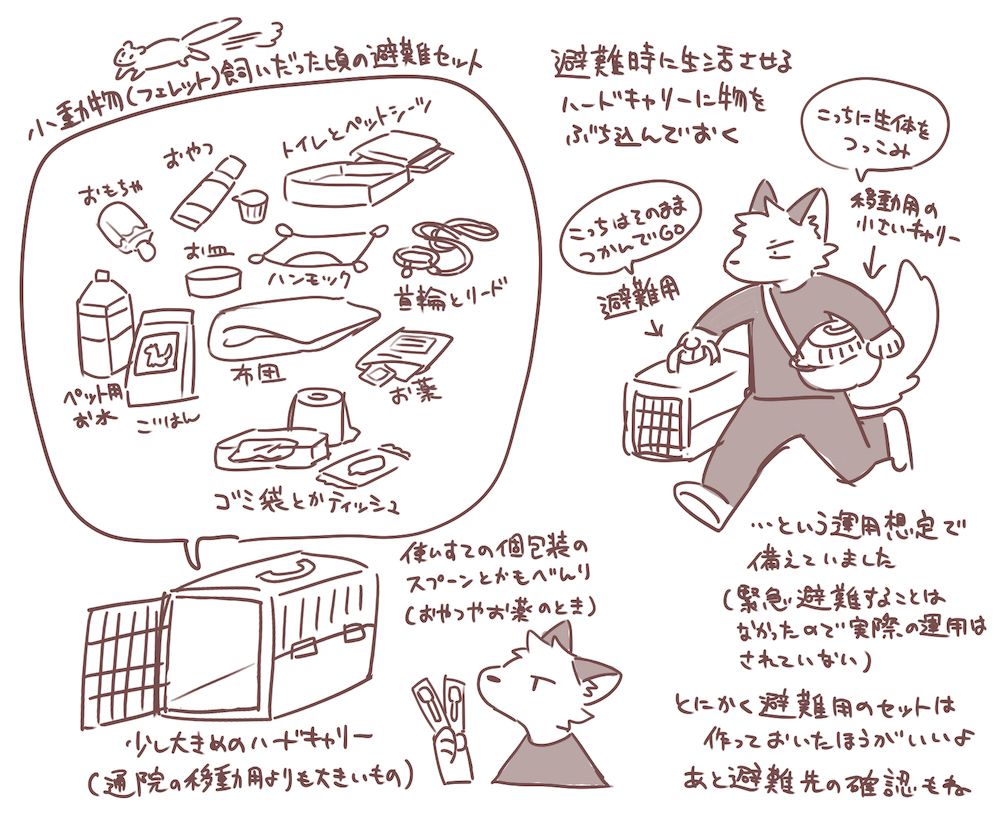 小動物(フェレット)飼いだった頃の避難セット
おやつ
トイレとペットシーツ
おもちゃ
お皿
ハンモック
首輪とリード
ペット用
お水
ごはん
布団
お薬
ゴミ袋とかティッシュ
少し大きめのハードキャリー
(通院の移動用よりも大きいもの)
使いすての個包装の
スプーンとかもべんり
(おやつやお薬のとき)
避難時に生活させる
ハードキャリーに物を
ぶち込んでおく
こっちに生体を
つっこみ
移動用の
小さいキャリー
こっちはそのまま
つかんでGO
避難用
…という運用想定で
備えていました
(緊急避難することは
なかったので実際の運用は
されていない)
とにかく避難用のセットは
作っておいたほうがいいよ
あと避難先の確認もね